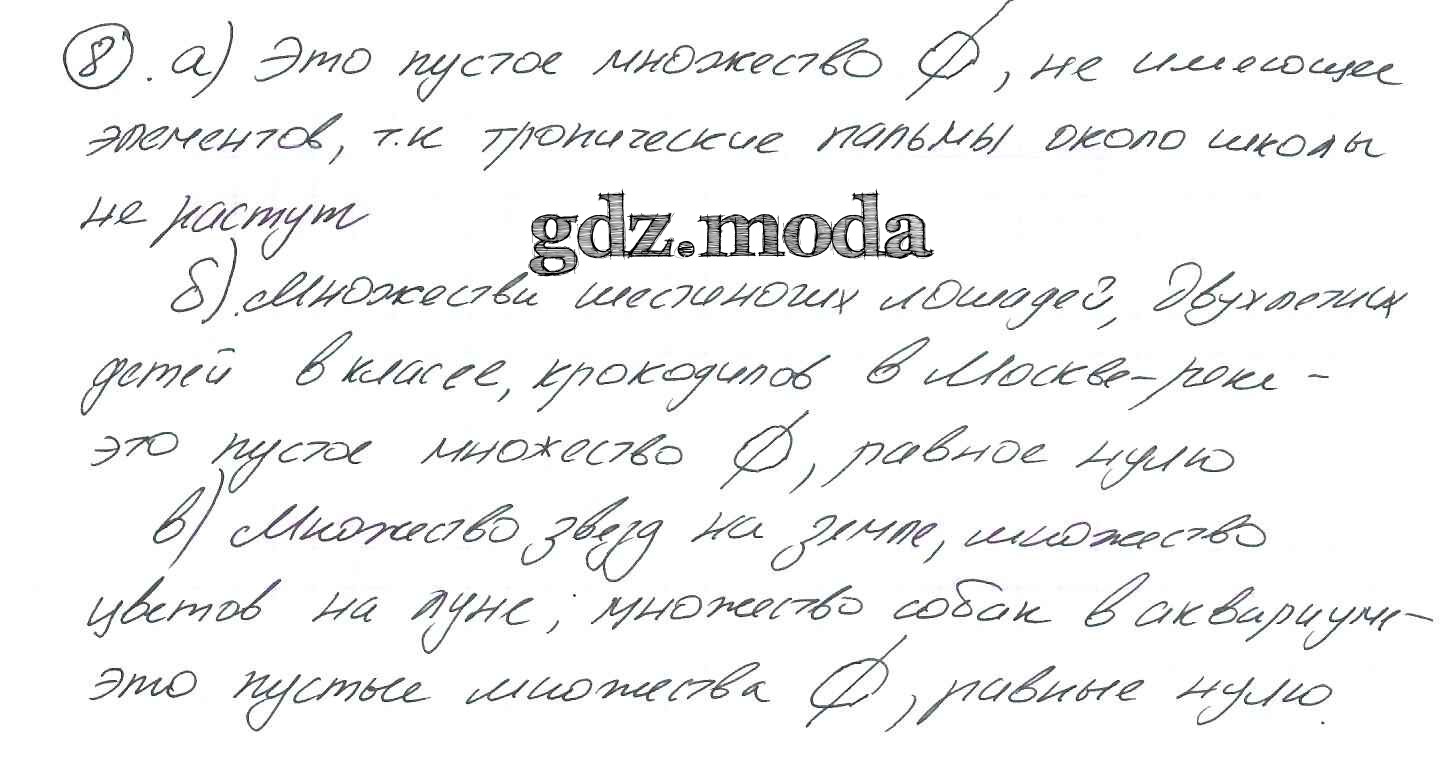 8. а) Это пустое множество ∅, не имеющее
элементов, т.к тропические пальмы около школы
не растут
gdz.moda
б). Множества шестиногих лошадей, двухлетних
детей в классе, крокодилов в Москве-реке -
это пустое множество ∅, равное нулю
в) Множество звезд на земле, множество
цветов на луне; множество собак в аквариуме-
это пустые множества ∅, равные нулю.